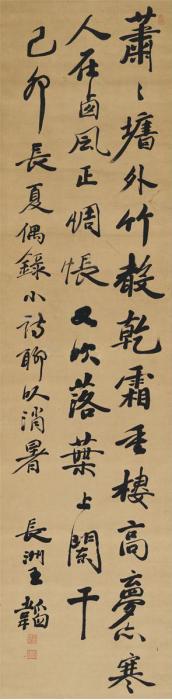 蕭〻墻外竹聲乾霜重樓高夢亦寒
人在西風正惆悵又吹落葉上闌干
己卯長夏偶錄小詩聊以消暑 長洲王韜